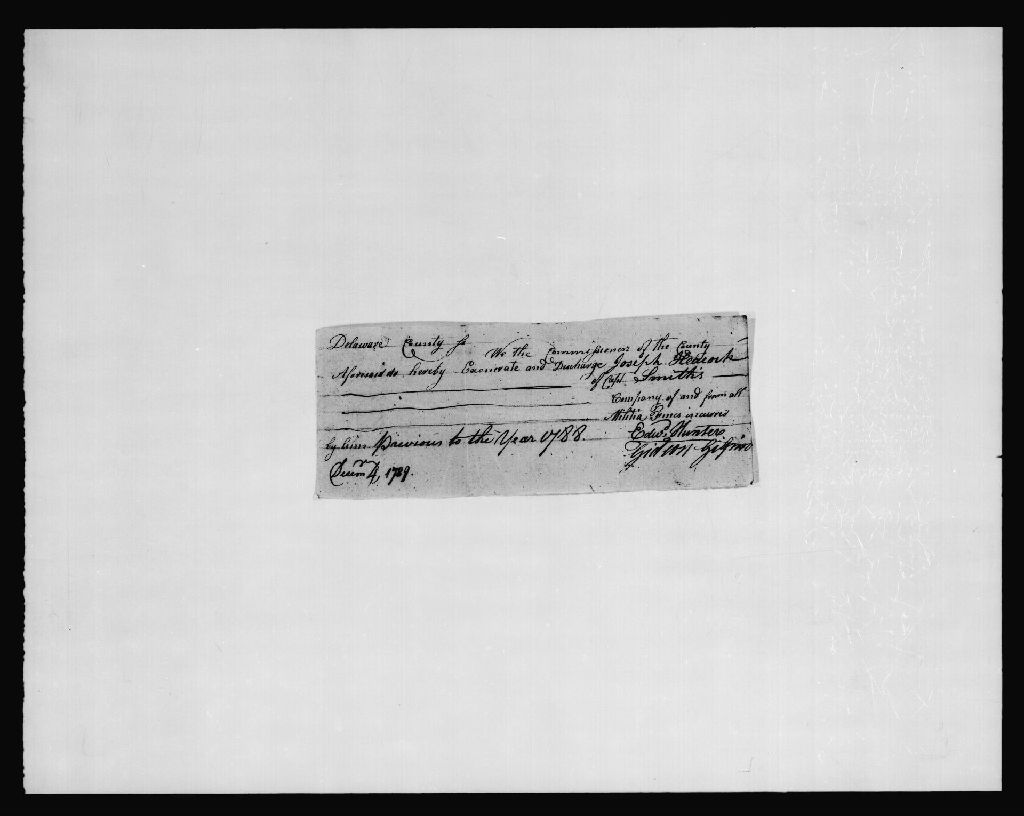 Delaware County ss
We the Commissioners of the County
Aforesaid do hereby Exonerate and Discharge Joseph
of Capt. Smith's
Company of and from all
Militia Fines incurred
by him Previous to the Year 1788.
Edwd. Hunter
Gideon Gilpin
Decemr. 4, 1789.